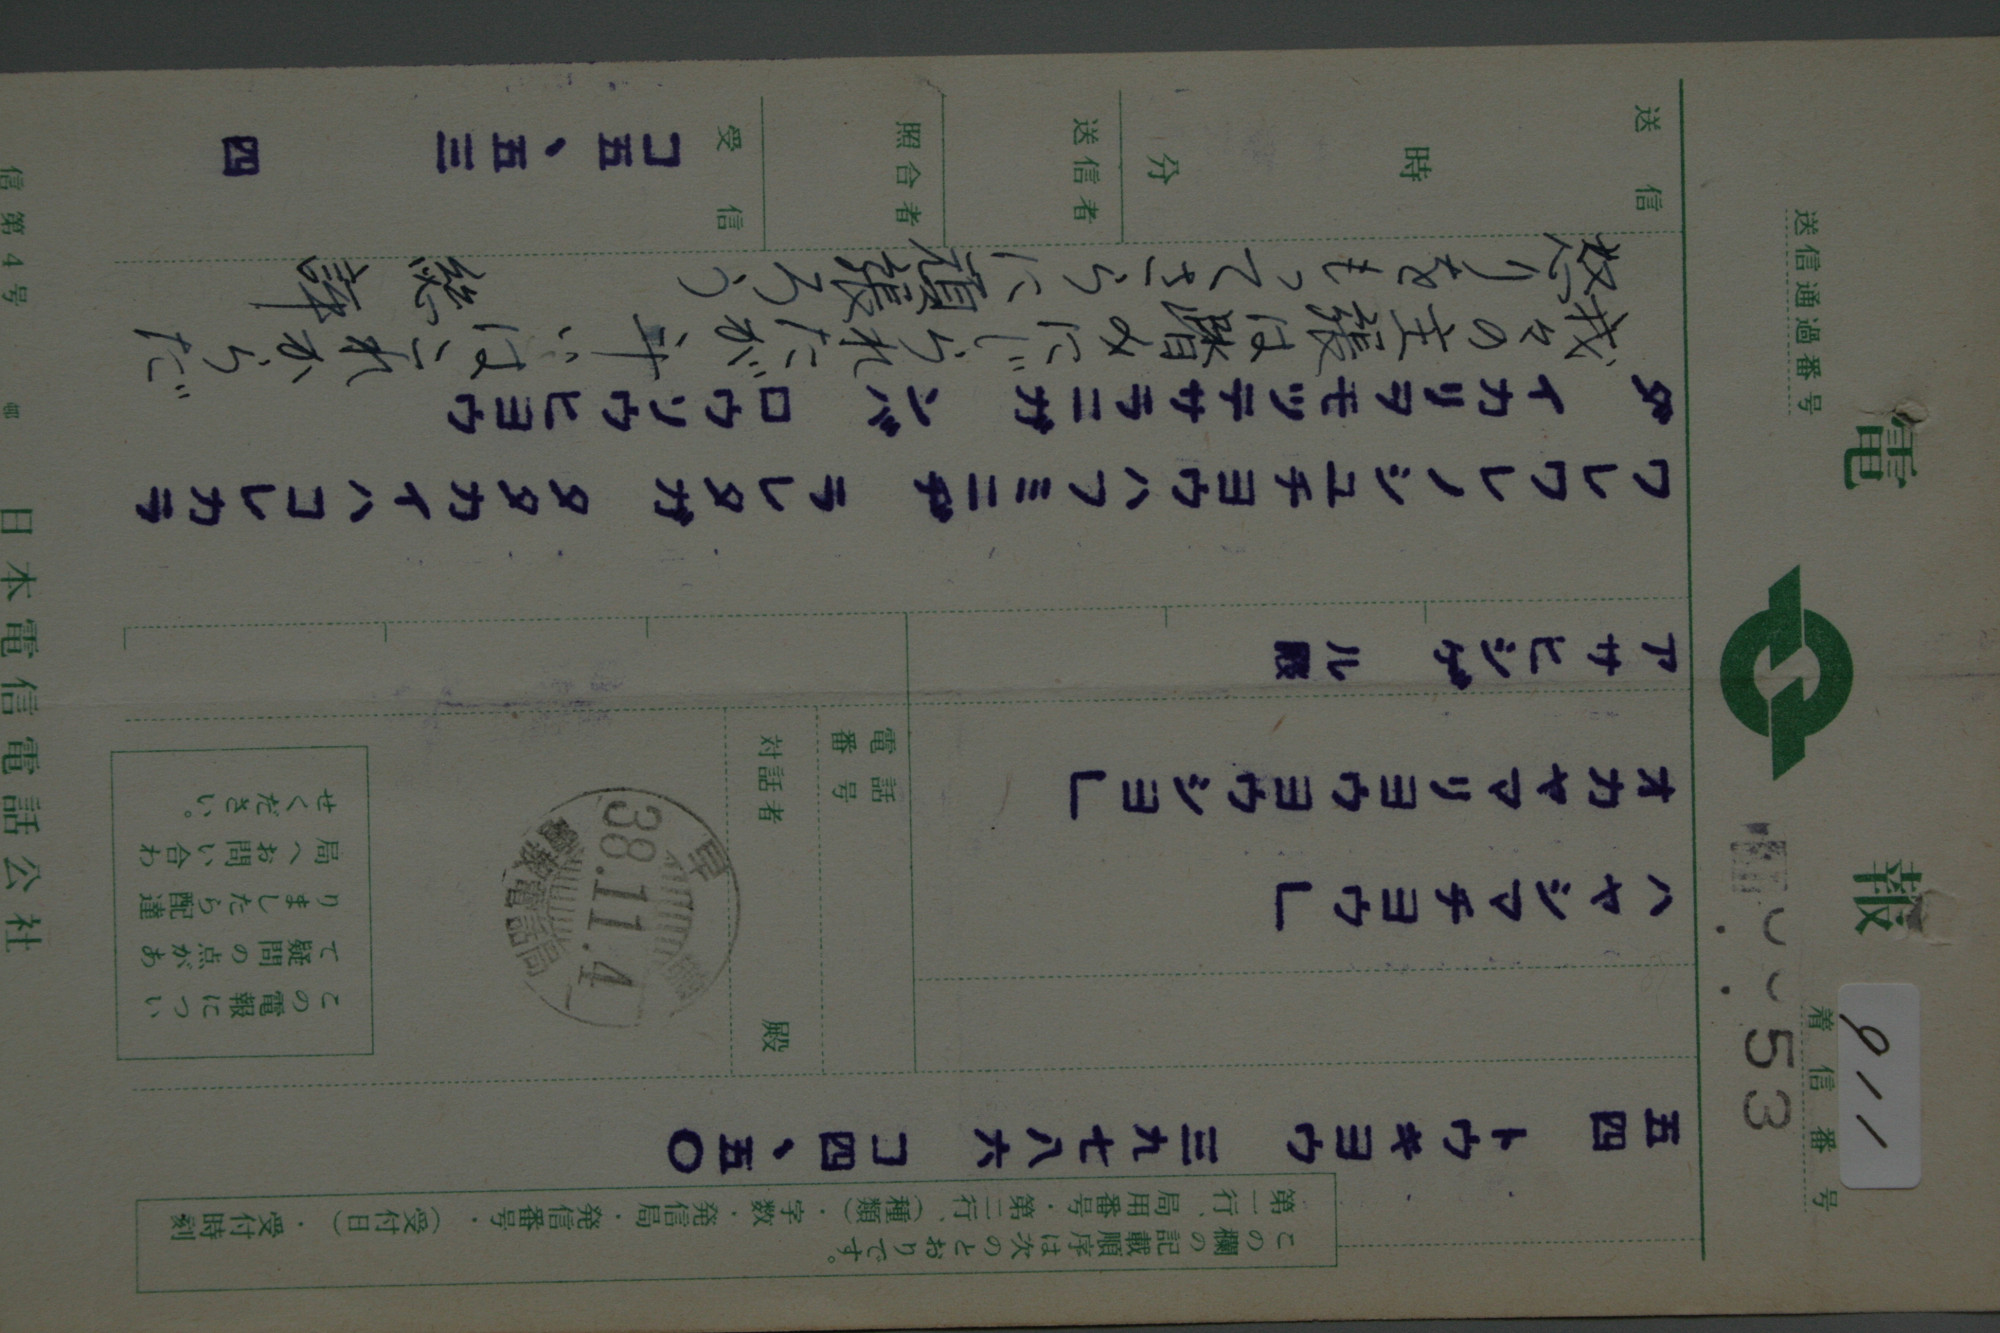 電報
着信番号
53
911
送信通過番号
この欄の記載順序は次のとおりです。
第一行、局用番号・第二行、(種類)・字数・発信局・発信番号・(受付日)・受付時刻
五四 トウキヨウ 三九七八六 コ四、五〇
ハヤシマチヨウ」
オカヤマリヨウヨウシヨ」
アサヒシゲル殿
電話番号
対話者
殿
38.11.4
この電報につい
て疑問の点があ
りましたら配達
局へお問い合わ
せください。
ワレワレノシユチヨウハフミニヂラレタガタタカイハコレカラ
ダ イカリヲモツテサラニガンバロウソウヒヨウ
我々の主張は踏みにじられたが斗いはこれからだ
怒りをもってさらに頑張ろう 総評
送信
時
分
送信者
照合者
受信
コ五、五三
四
信第4号
日本電信電話公社